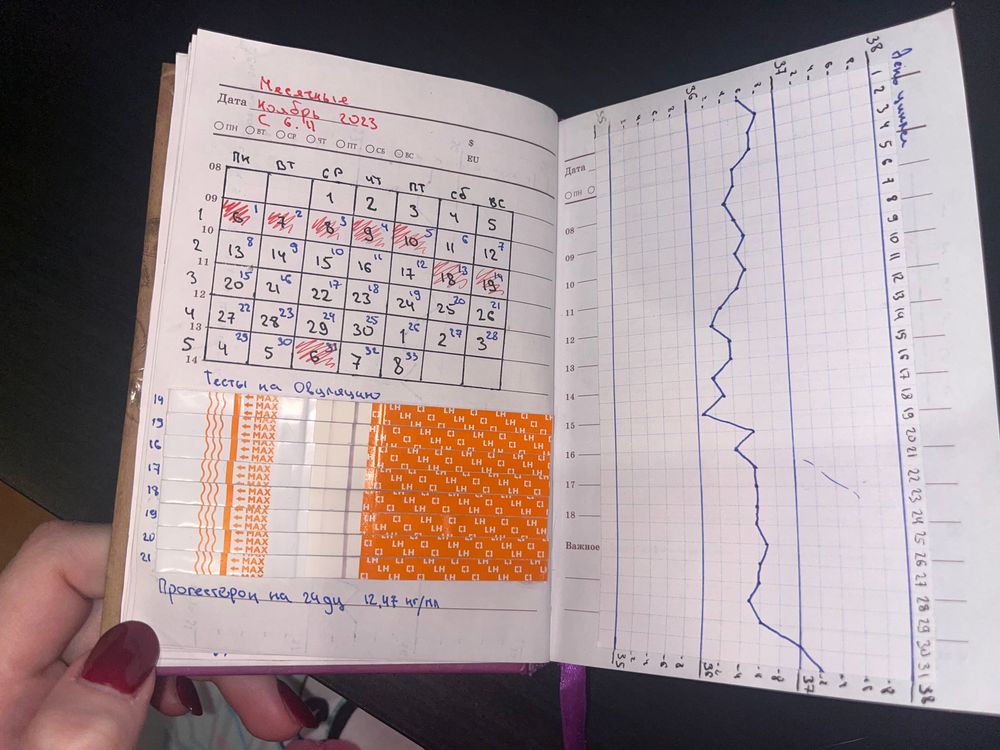 Месячные
Дата Ноябрь 2023
С 6.11
ПН ВТ СР ЧТ ПТ СБ ВС
$
EU
ПН ВТ СР ЧТ ПТ СБ ВС
08
1 2 3 4 5
09
1 6 1 7 2 8 3 9 4 10 5 11 6 12 7
10
2 13 8 14 9 15 10 16 11 17 12 18 13 19 14
11
3 20 15 21 16 22 17 23 18 24 19 25 20 26 21
12
4 27 22 28 23 29 24 30 25 1 26 2 27 3 28
13
5 4 29 5 30 6 31 7 32 8 33
14
Тесты на Овуляцию
14
15
16
17
18
19
20
21
MAX
LH CI
Прогестерон на 24 дц 12,47 нг/мл
День цикла
38 1 2 3 4 5 6 7 8 9 10 11 12 13 14 15 16 17 18 19 20 21 22 23 24 25 26 27 28 29 30 31 38
37
36
35
Дата
ПН
08
09
10
11
12
13
14
15
16
17
18
Важное
35 2 4 6 8 36 2 4 6 8 37 2 4 6 8